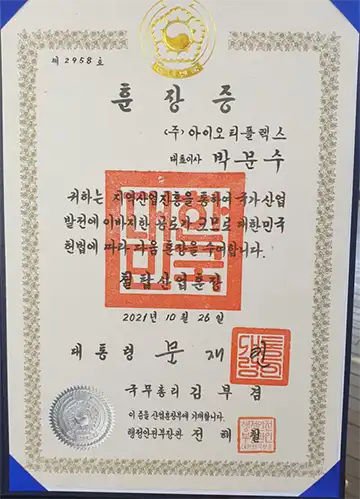 제 2958 호
훈장증
(주)아이오티플렉스
대표이사 박문수
귀하는 지역산업진흥을 통하여 국가산업
발전에 이바지한 공로가 크므로 대한민국
헌법에 따라 다음 훈장을 수여합니다.
철탑산업훈장
2021년 10월 26일
대통령 문재인
국무총리 김부겸
이 증을 산업훈장부에 기재합니다.
행정안전부장관 전해철